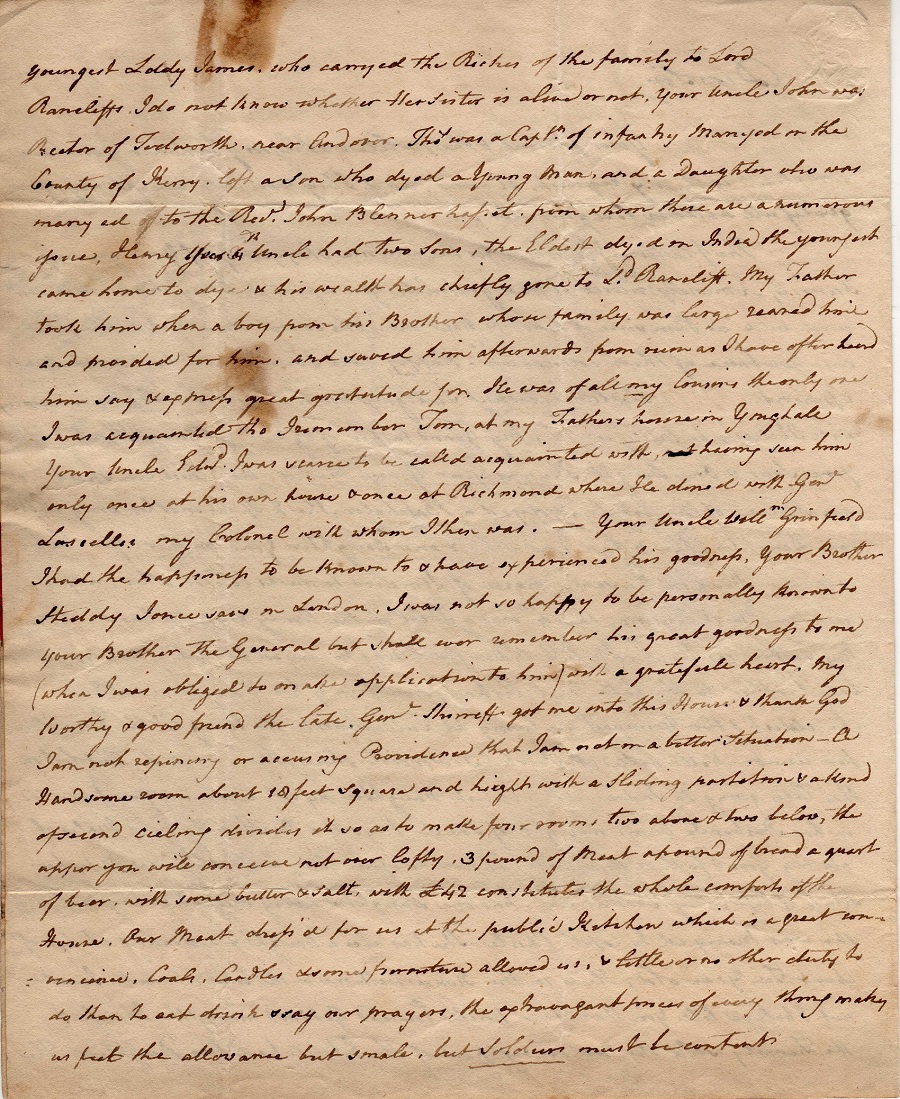 youngest Lddy James. who carryed the Riches of the family to Lord
Rancliffs. I do not know whether Her Sister is alive or not, your Uncle John was
Rector of Tedworth. near Andover. Tho.s was a Capt.n of infantry Marryed in the
County of Kerry. left a Son who dyed a Young Man, and a Daughter who was
marryed to the Rev.d John Blennerhasset. from whom there are a numerous
issue, Henry your 4th Uncle had two Sons, the Eldest dyed in India the youngest
came home to dye & his wealth has chiefly gone to L.d Rancliff. My Father
took him when a boy from his Brother whose family was large reared him
and provided for him. and saved him afterwards from ruin as I have often heard
him say & express great gratitude for. He was of all my Cousins the only one
I was acquainted tho I remember Tom, at my Fathers house in Youghale
Your Uncle Edw.d I was scarce to be called acquainted with, having seen him
only once at his own house & once at Richmond where He dined with Gen.l
Lascelles my Colonel with whom I then was. — Your Uncle Will.m Grinfield
I had the happiness to be known to & have experienced his goodness, Your Brother
Steddy I once saw in London, I was not so happy to be personally known to
your Brother the General but shall ever remember his great goodness to me
(when I was obliged to make application to him) with a gratefule heart. My
worthy & good friend the late. Gen.l Shirreff got me into this House & thank God
I am not repining or accusing Providence that I am not in a better Situation — A
Handsome room about 18 feet Square and height with a Sliding partition & a kind
of second cieling divides it so as to make four rooms two above & two below, the
upper you will conceive not over lofty, 3 pound of Meat a pound of bread a quart
of beer. with some butter & salt. with £42 constitutes the whole comforts of the
House. Our Meat dress'd for us at the public Kitchen which is a great con-
=venience, Coals, Candles & some furniture allowed us, & little or no other duty to
do than to eat drink & say our prayers, the extravagant prices of every thing makes
us feel the allowance but smale, but Soldiers must be content